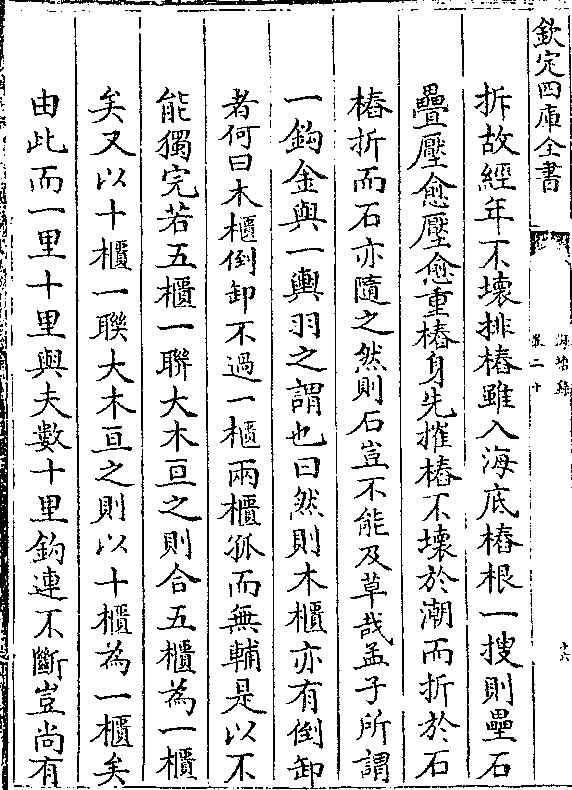 欽定四庫全書
海塘錄
卷二十
十六
拆故經年不壞排樁雖入海底樁根一搜則壘石
疊壓愈壓愈重樁身先摧樁不壞於潮而折於石
樁折而石亦隨之然則石豈不能及草哉孟子所謂
一鈎金與一輿羽之謂也曰然則木櫃亦有倒卸
者何曰木櫃倒卸不過一櫃兩櫃孤而無輔是以不
能獨完若五櫃一聯大木亘之則合五櫃為一櫃
矣又以十櫃一聯大木亘之則以十櫃為一櫃矣
由此而一里十里與夫數十里鈎連不斷豈尚有